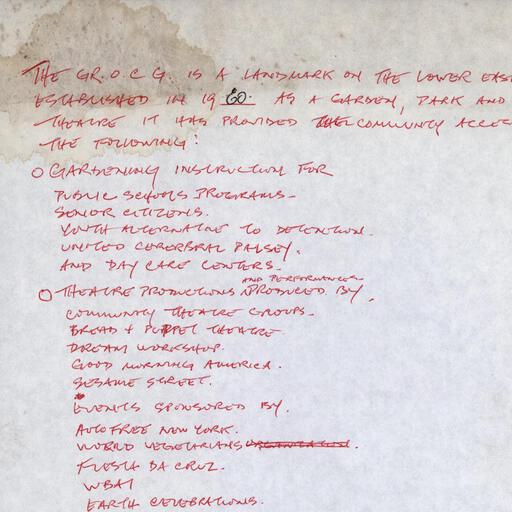 THE GR. O. C G. IS A LANDMARK ON THE LOWER EAS
ESTABLISHED IN 19 60. AS A GARDEN, PARK AND
THEATRE IT HAS PROVIDED THE COMMUNITY ACCES
THE FOLLOWING:
O GARDENING INSTRUCTION FOR
PUBLIC SCHOOLS PROGRAMS_
SENIOR CITIZENS.
YOUTH ALTERNATIVE TO DETENTION.
UNITED CEREBRAL PALSEY.
AND DAY CARE CENTERS_
AND PERFORMANCES
O THEATRE PRODUCTIONS PRODUCED BY,
COMMUNITY THEATRE GROUPS_
BREAD + PUPPET THEATRE
DREAM WORKSHOP.
GOOD MORNING AMERICA.
SESAME STREET.
EVENTS SPONSORED BY.
AUTO FREE NEW YORK.
WORLD VEGETARIANS
FIESTA DA CRUZ.
WBAI
EARTH CELEBRATIONS.